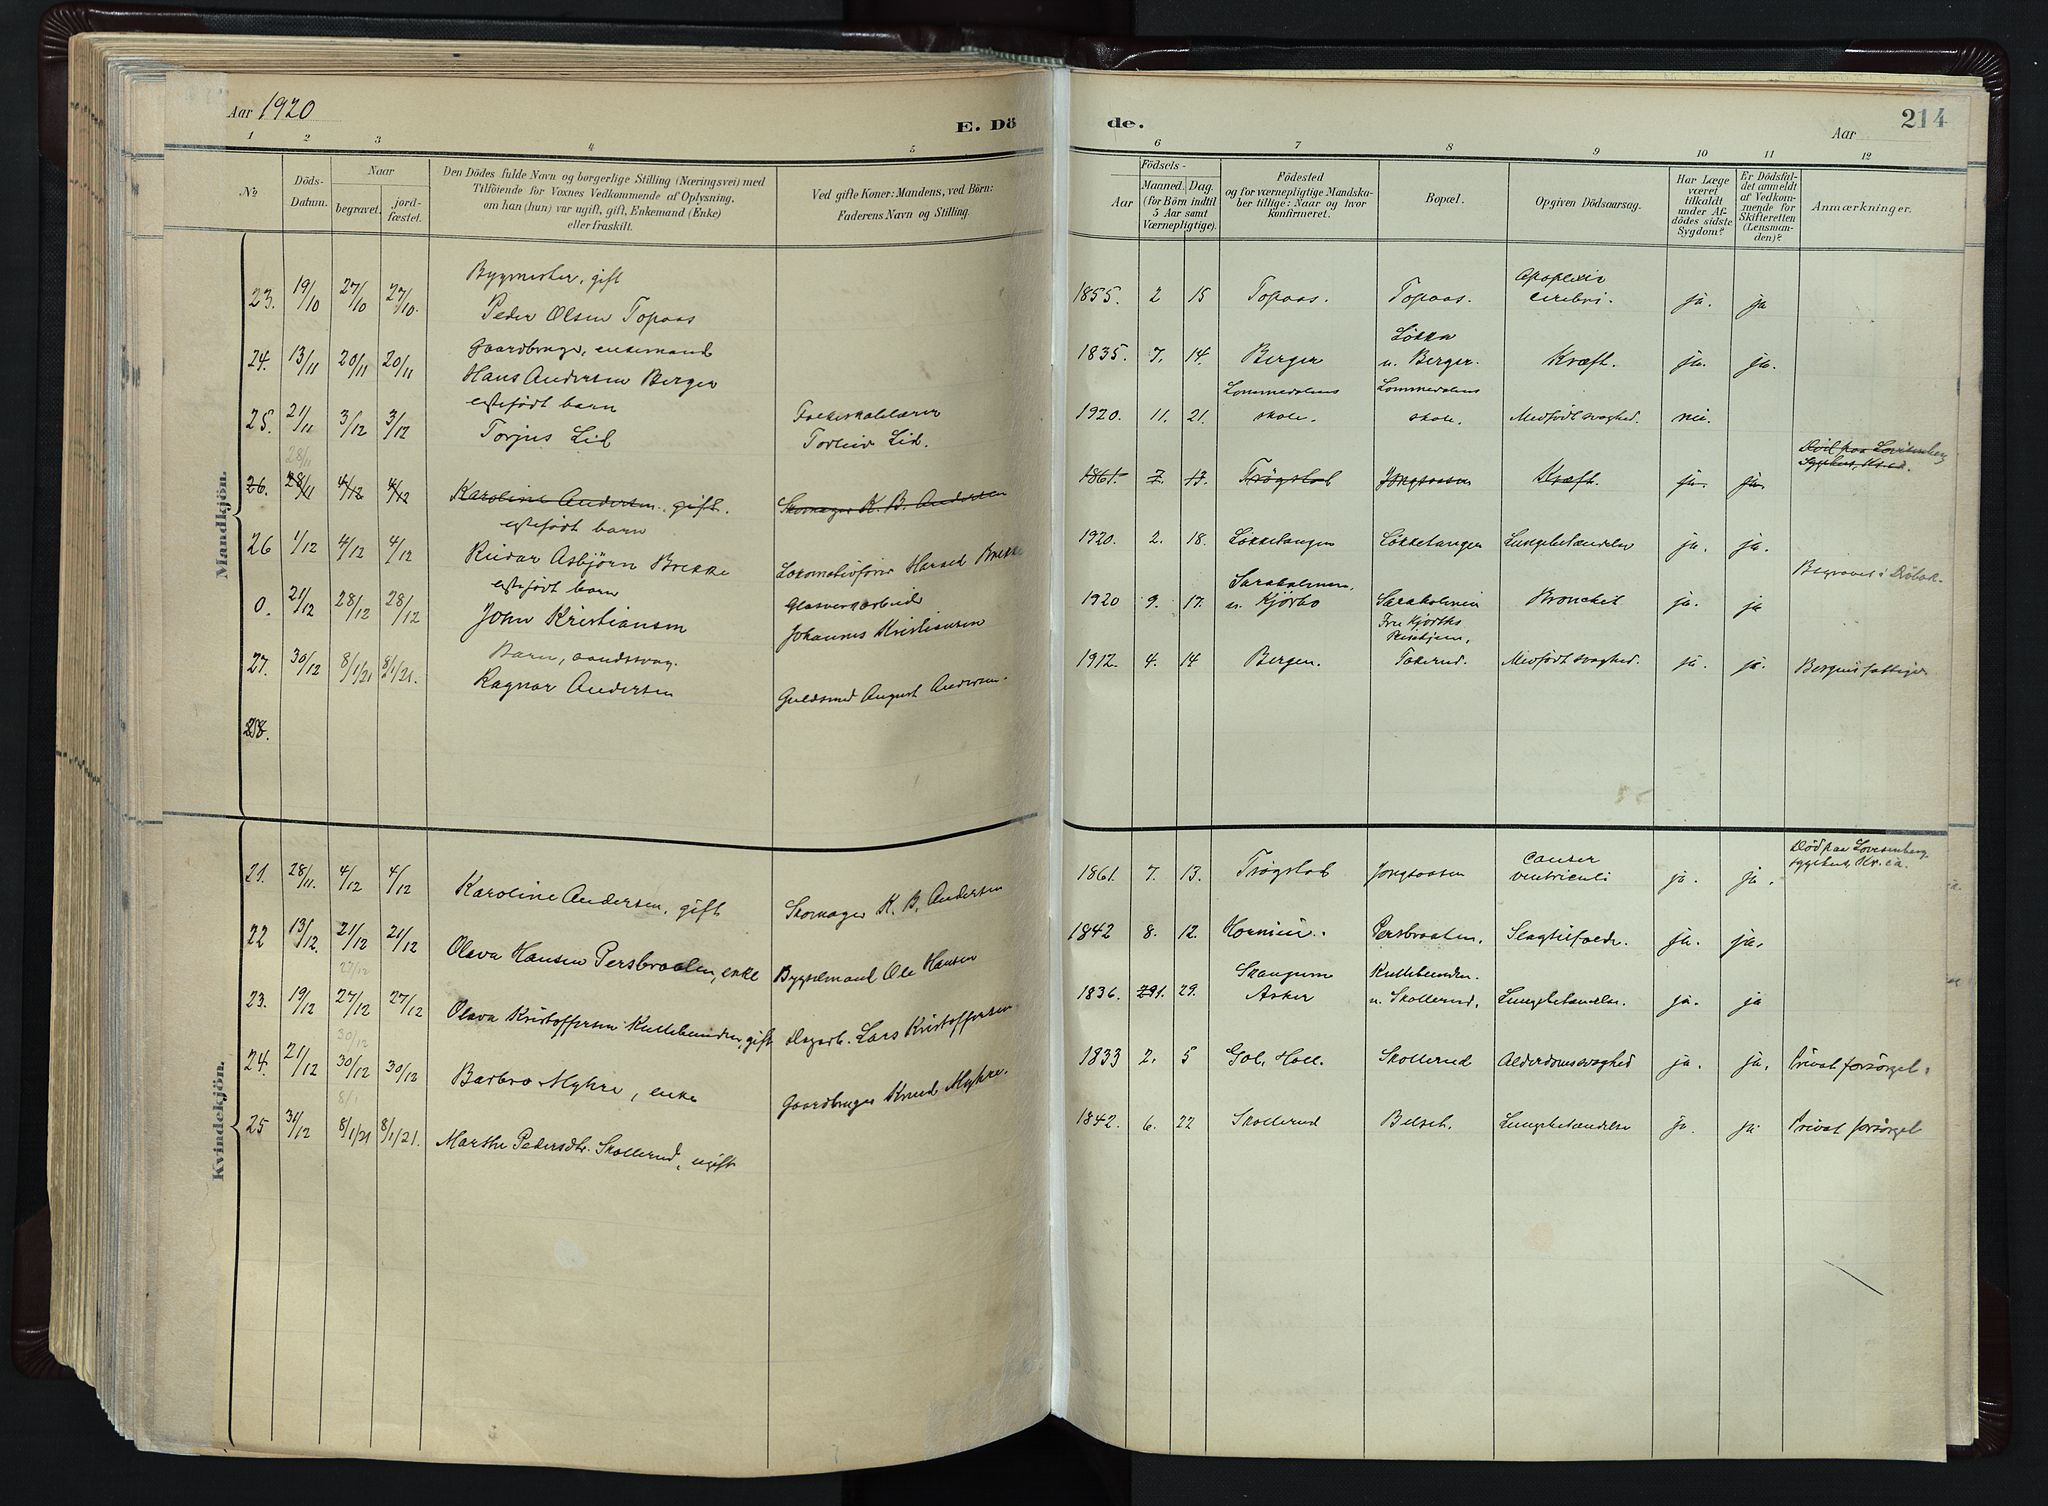 Aar 1920
E. Dö
de.
Aar
214
1 2 3 4 5 6 7 8 9 10 11 12
No
Döds-Datum.
Naar
begravet.
jord-fæstet.
Den Dödes fulde Navn og borgerlige Stilling (Næringsvei) med
Tilföiende for Voxnes Vedkommende af Oplysning,
om han (hun) var ugift, gift, Enkemand (Enke)
eller fraskilt.
Ved gifte Koner: Mandens, ved Börn:
Faderens Navn og Stilling.
Födsels-
Aar
Maaned. Dag.
(for Börn indtil
5 Aar samt
Værnepligtige).
Födested
og for værnepligtige Mandska-
ber tillige: Naar og hvor
konfirmeret.
Bopæl.
Opgiven Dödsaarsag.
Har Læge
været
tilkaldt
under Af-
dödes sidste
Sygdom?
Er Dödsfal-
det anmeldt
af Vedkom-
mende for
Skifteretten
(Lensman-
den)?
Anmærkninger.
Mandkjön.
Bygmester, gift
23. 19/10 27/10 27/10. Peder Olsen Topaas 1855. 2 15 Topaas. Topaas. Apoplexia cerebri. ja. ja
Gaardbruger, enkemand
24. 13/11 20/11 20/11 Hans Andersen Berger 1835. 7. 14. Berger Løkka u. Berger. Kræft. ja. ja.
egtefødt barn
25. 21/11 3/12 3/12 Torjus Lid Folkeskolelærer Torleiv Lid. 1920. 11. 21. Lommedalens skole. Lommedalens skole. Medfødt svaghed. nei.
28/11
26. 28/11 4/12 4/12 Karoline Andersen, gift. Skomager K. B. Andersen 1861. 7. 13. Trøgstad Jongsaasen Kræft. ja. ja. Død paa Lovisenberg Sygehus, Kr.ia.
egtefødt barn
26 1/12 4/12 4/12 Reidar Asbjørn Brekke Lokomotivfører Harald Brekke 1920. 2. 18. Løkketangen Løkketangen Lungebetændelse ja. ja.
egtefødt barn
0. 21/12 28/12 28/12 John Kristiansen Glasverksarbeider Johannes Kristiansen 1920 9. 17. Saraholmen u. Kjørbo Saraholmen Bronchit ja. ja Begravet i Drøbak.
Barn, aandssvag.
27. 30/12 8/1/21 8/1/21. Ragnar Andersen Guldsmed August Andersen. 1912. 4. 14 Bergen. Tokerud. Medfødt svaghed. ja. ja. Bergens fattige
28.
Kvindekjön.
21. 28/11. 4/12 4/12 Karoline Andersen, gift Skomager K. B. Andersen 1861. 7. 13. Trøgstad Jongsaasen Cancer ventriculi ja. ja. Død paa Lovisenberg sygehus, Kr.ia.
22 13/12. 21/12 21/12 Olava Hansen Persbraaten, enke Bygselmand Ole Hansen 1842 8. 12. Persbraaten. Slagtilfælde. ja. ja.
27/12
23. 19/12 27/12 27/12 Olava Kristoffersen Kullebunden, gift Dagarb. Lars Kristoffersen 1836. 29. Skaugum Asker Kullebunden u. Skollerud. Lungebetændelse. ja. ja
30/12
24. 21/12 30/12 30/12 Barbro Myhre, enke Gaardbruger Knud Myhre. 1833 2. 5 Gol, Hall. Skollerud Alderdomssvaghed ja. ja. Privat forsørget.
8/1
25 31/12 8/1/21 8/1/21. Marthe Pedersdtr. Skollerud, ugift 1842. 6. 22 Skollerud Belset. Lungebetændelse ja. ja. Privat forsørget